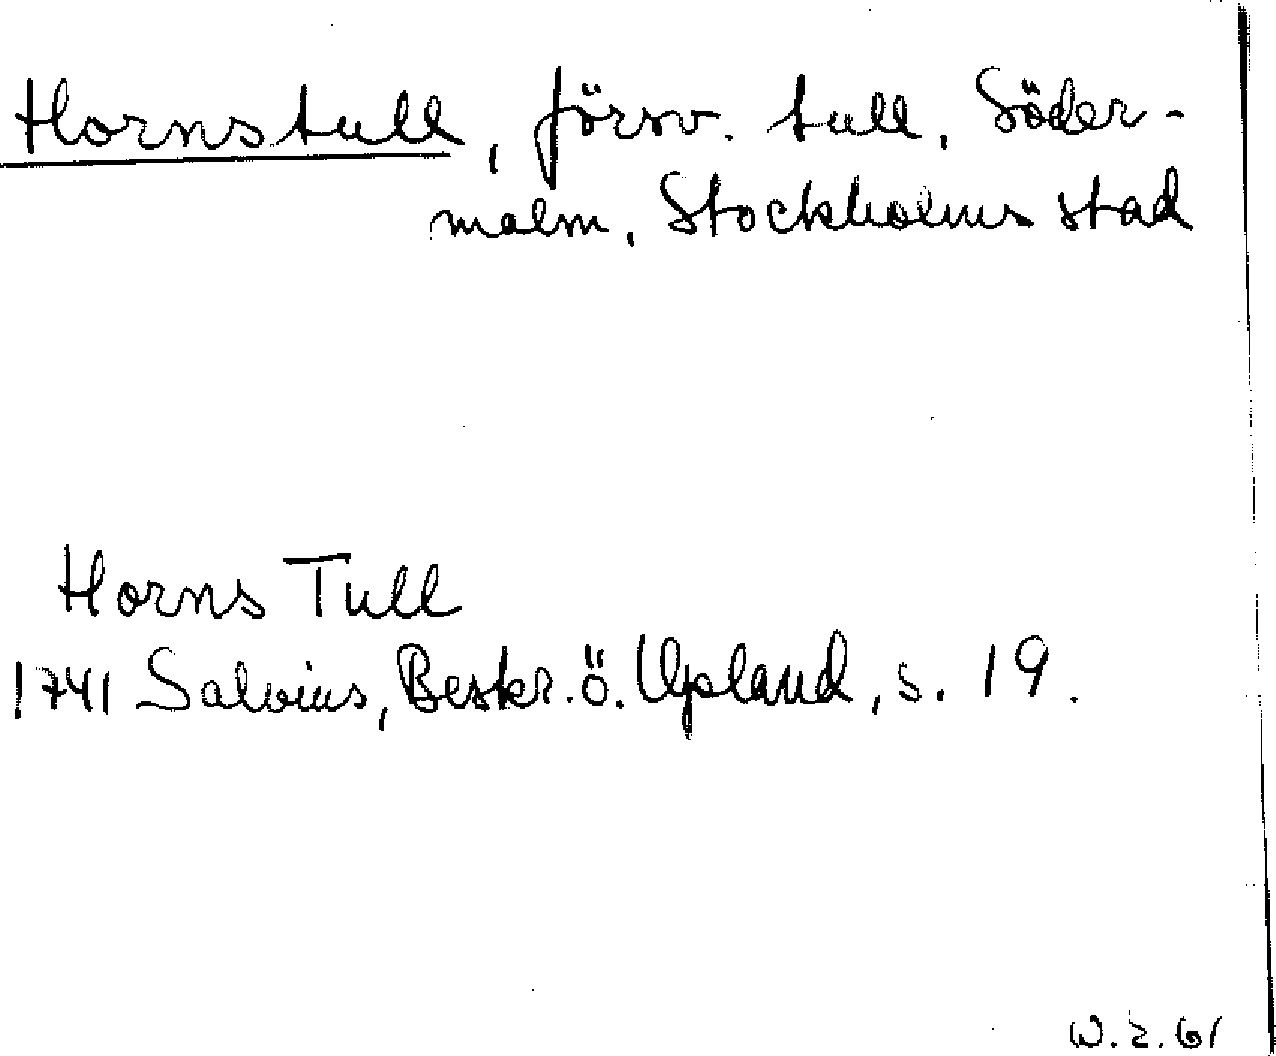 Hornstull, försv. tull, Söder-
malm, Stockholms stad
Horns Tull
1741 Salvius, Beskr. ö. Upland, s. 19.
W. 2. 61